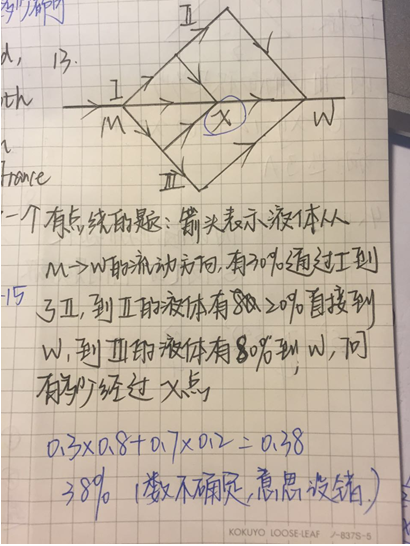 d,
13.
II
I
M
X
W
III
一个有点绕的题:箭头表示液体从
M→W的流动方向,有30%通过I到
了II,到II的液体有20%直接到
-15
W,到III的液体有80%到W,问
有多少经过X点
0.3×0.8+0.7×0.2=0.38
38% (数不确定,意思没错)
KOKUYO LOOSE-LEAF ノ-837S-5